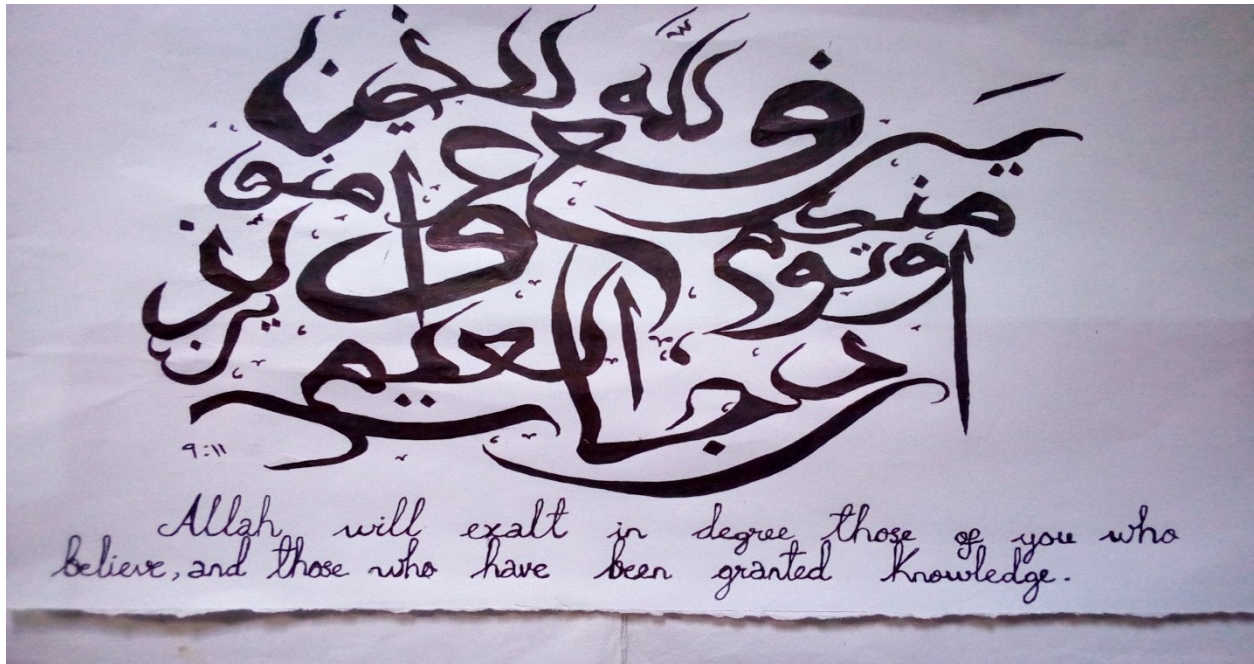 يرفع الله الذين
امنو منكم
و الذين اوتو
العلم درجات
٩:١١
Allah will exalt in degree those of you who
believe, and those who have been granted knowledge.